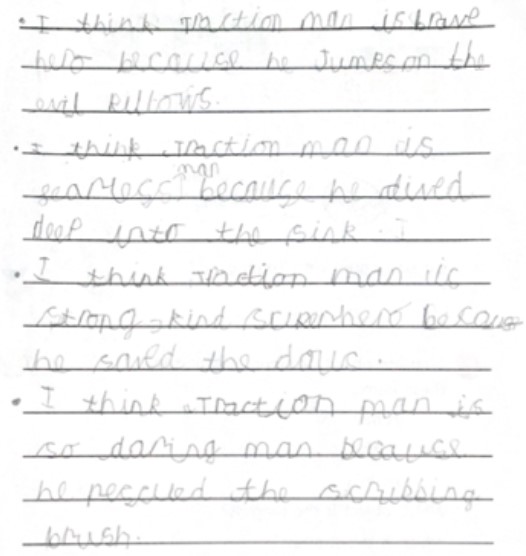 • I think Traction man is brave
hero because he Jumes on the
evil Pillows.
• I think Traction man is
fearless man because he dived
deep into the sink.
• I think Traction man is
strong, kind superhero because
he saved the dolls.
• I think Traction man is
so daring man because
he rescued the scrubbing
brush.